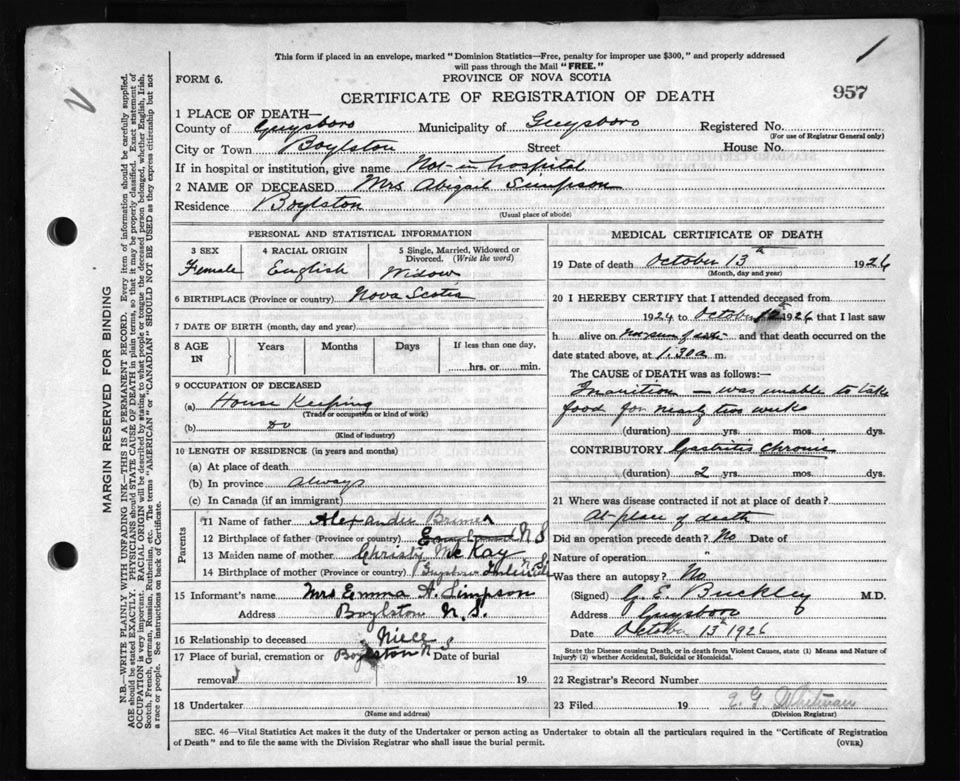 This form if placed in an envelope, marked "Dominion Statistics—Free, penalty for improper use $300," and properly addressed
will pass through the Mail "FREE."
FORM 6.
PROVINCE OF NOVA SCOTIA
CERTIFICATE OF REGISTRATION OF DEATH
957
1 PLACE OF DEATH—
County of Guysboro Municipality of Guysboro Registered No.
(For use of Registrar General only)
City or Town Boylston Street House No.
If in hospital or institution, give name Not in hospital
2 NAME OF DECEASED Mrs Abigail Simpson
Residence Boylston
(Usual place of abode)
PERSONAL AND STATISTICAL INFORMATION
3 SEX 4 RACIAL ORIGIN 5 Single, Married, Widowed or
Divorced. (Write the word)
Female English Widow
6 BIRTHPLACE (Province or country) Nova Scotia
7 DATE OF BIRTH (month, day and year)
8 AGE
IN
Years Months Days If less than one day,
hrs. or min.
9 OCCUPATION OF DECEASED
(a) House Keeping
(Trade or occupation or kind of work)
(b) do
(Kind of industry)
10 LENGTH OF RESIDENCE (in years and months)
(a) At place of death
(b) In province always
(c) In Canada (if an immigrant)
Parents
11 Name of father Alexander
12 Birthplace of father (Province or country) N S
13 Maiden name of mother Christy McKay
14 Birthplace of mother (Province or country)
15 Informant's name Mrs Emma A. Simpson
Address Boylston N. S.
16 Relationship to deceased Niece
17 Place of burial, cremation or Boylston N S Date of burial
removal 19
18 Undertaker
(Name and address)
MEDICAL CERTIFICATE OF DEATH
19 Date of death October 13th 1926
(Month, day and year)
20 I HEREBY CERTIFY that I attended deceased from
1924 to October 1926 that I last saw
h alive on and that death occurred on the
date stated above, at 1.30 a m.
The CAUSE of DEATH was as follows:—
Inanition — was unable to take
food for nearly two weeks
(duration) yrs. mos. dys.
CONTRIBUTORY Gastritis Chronic
(duration) 2 yrs. mos. dys.
21 Where was disease contracted if not at place of death?
At place of death
Did an operation precede death? No Date of
Nature of operation "
Was there an autopsy? No
(Signed) G. E. Buckley M.D.
Address Guysboro
Date October 13th 1926
State the Disease causing Death, or in death from Violent Causes, state (1) Means and Nature of
Injury; (2) whether Accidental, Suicidal or Homicidal.
22 Registrar's Record Number
23 Filed 19 Whitman
(Division Registrar)
SEC. 46—Vital Statistics Act makes it the duty of the Undertaker or person acting as Undertaker to obtain all the particulars required in the "Certificate of Registration
of Death" and to file the same with the Division Registrar who shall issue the burial permit.
(OVER)
MARGIN RESERVED FOR BINDING
N.B.—WRITE PLAINLY WITH UNFADING INK—THIS IS A PERMANENT RECORD. Every item of information should be carefully supplied.
AGE should be stated EXACTLY. PHYSICIANS should STATE CAUSE OF DEATH in plain terms, so that it may be properly classified. Exact statement of
OCCUPATION is very important. RACIAL ORIGIN will be described by stating to what people or tongue the deceased person belonged, whether English, Irish,
Scotch, French, German, Russian, Ruthenian, etc. The terms "AMERICAN" or "CANADIAN" SHOULD NOT BE USED as they express citizenship but not
a race or people. See instructions on back of Certificate.